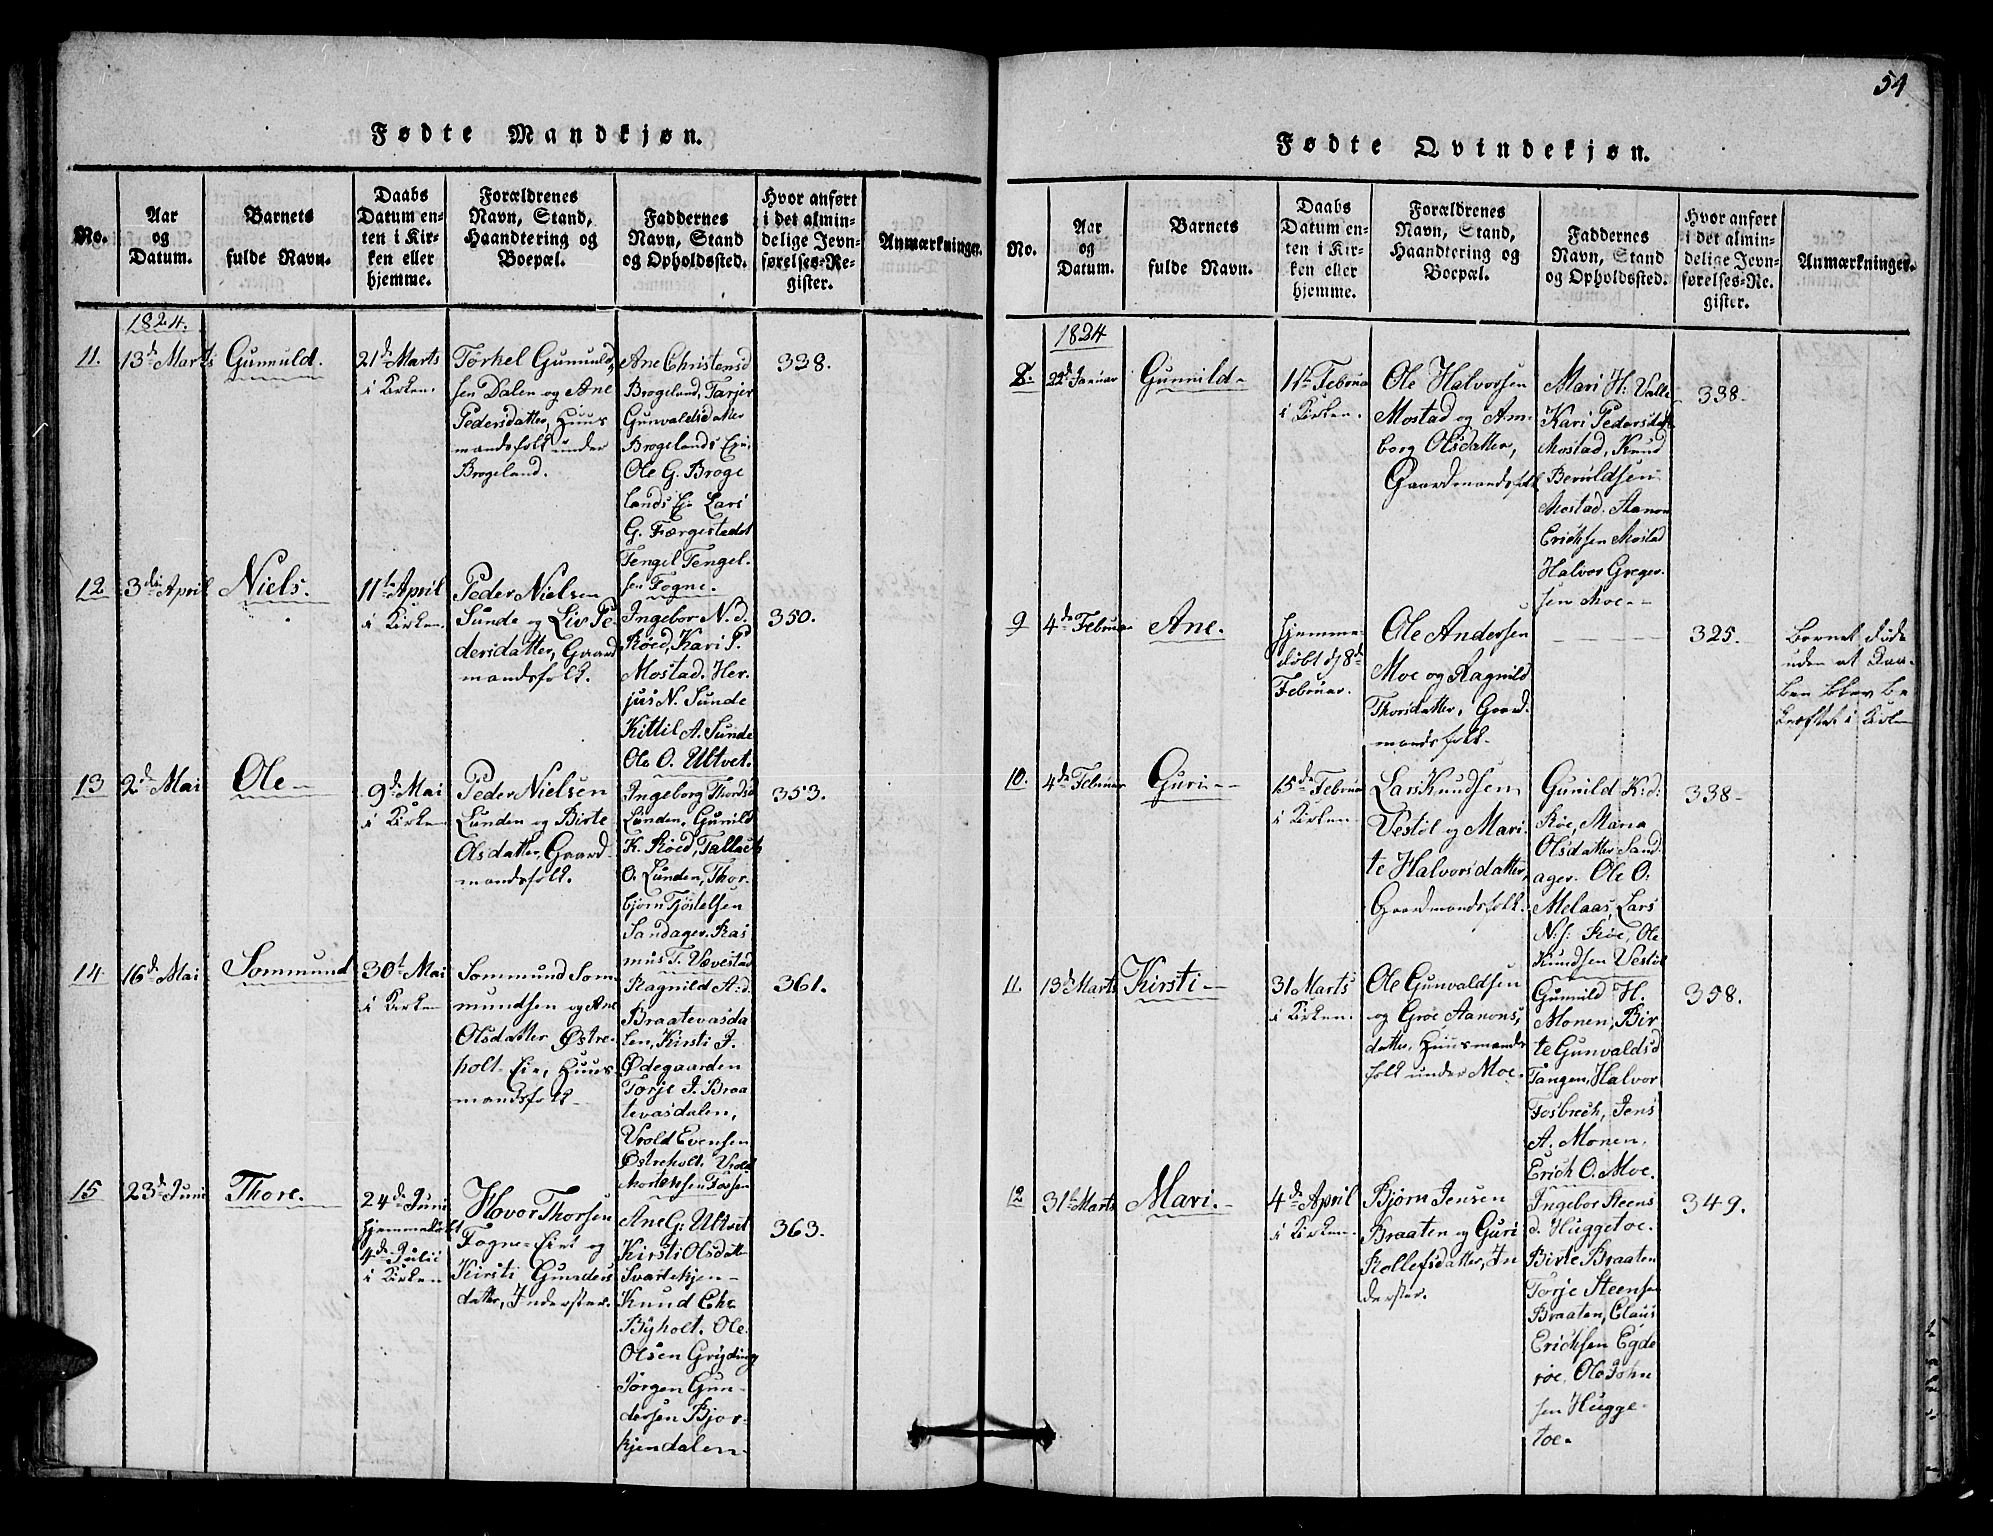 Fødte Mandkjøn.
No.
Aar
og
Datum.
Barnets
fulde Navn.
Daabs
Datum en-
ten i Kir-
ken eller
hjemme.
Forældrenes
Navn, Stand,
Haandtering og
Boepæl.
Faddernes
Navn, Stand
og Opholdssted.
Hvor anført
i det almin-
delige Jevn-
førelses-Re-
gister.
Anmærkninger.
1824.
11.
13d Marts
Gunnuld.
21d Marts
i Kirken.
Torkel Gunnuld-
sen Dalen og Ane
Pedersdatter, Huus
mandsfolk under
Brogeland.
Ane Christensd
Brogeland, Tarjer
Gunvaldsdatter
Brogelands Eje.
Ole G. Broge
lands Eje Lars
G. Færgestadet
Tengel Tengel-
sen Fogne.
338.
12
3die April
Niels.
11te April
i Kirken.
Peder Nielsen
Sunde og Liv Pe
dersdatter, Gaard
mandsfolk.
Ingebor N.d.
Røed, Kari P.
Mostad. Her-
jus N. Sunde
Kittil A. Sunde
Ole O. Ultvet.
350.
13
2d Mai
Ole
9d Mai
i Kirken
Peder Nielsen
Lunden og Birte
Olsdatter, Gaard-
mandsfolk.
Ingeborg Thordsd
Lunden, Gunild
K. Røed, Tallach
O. Lunden, Thor-
bjørn Tjøstelsen
Sandager. Ras
mus T. Vævestad
353.
14
16d Mai
Sommund
30t Mai
i Kirken
Sommund Som
mundsen og Ane
Olsdatter Østre-
holt-Eie, Huus-
mandsfolk
Ragnild A:d.
Braatevasda
len, Kirsti J.
Ødegaarden
Torje J. Braa
tevasdalen,
Vrold Evensen
Østreholt. Vrold
Mortensen Fossen
361.
15
23d Juni
Thore.
24d Juni
hjemmedøbt
4de Julii
i Kirken
Hovor Thorsen
Fogne-Eiet og
Kirsti Gunders
datter, Inderster.
Ane G: Ultvet
Kirsti Olsdatter
Svartekjen-
Knud Chr.
Byholt. Ole
Olsen Gryding
Jørgen Gun-
dersen Bjor-
kjendalen
363.
54
Fødte Qvindekjøn.
No.
Aar
og
Datum.
Barnets
fulde Navn.
Daabs
Datum en-
ten i Kir-
ken eller
hjemme.
Forældrenes
Navn, Stand,
Haandtering og
Boepæl.
Faddernes
Navn, Stand
og Opholdssted.
Hvor anført
i det almin-
delige Jevn-
førelses-Re-
gister.
Anmærkninger.
1824
8.
22d Januar
Gunnild
11te Februar
i Kirken.
Ole Halvorsen
Mostad og Am-
borg Olsdatter,
Gaardmandsfolk
Mari H: Valle
Kari Pedersdatter
Mostad, Knud
Beruldsen
Mostad. Aanon
Erichsen Mostad
Halvor Greger-
sen Moe.
338
9
4de Februar
Ane.
hjemme
døbt d 8de
Februar.
Ole Andersen
Moe og Ragnild
Thorsdatter, Gaard-
mandsfolk.
325.
Barnet døde
uden at Daa-
ben blev be
kræftet i Kirken
10.
4de Februar
Guri
15de Februar
i Kirken
Lars Knudsen
Vestøl og Mari-
te Halvorsdatter,
Gaardmandsfolk.
Gunild K:d:
Røe, Maria
Olsdatter Sand-
ager. Ole O:
Melaas, Lars
N:s: Røe, Ole
Knudsen Vestøl
338
11.
13d Marts
Kirsti
31 Marts
i Kirken.
Ole Gunvaldsen
og Groe Aanons-
datter, Huusmands
folk under Moe.
Gunnild H.
Monen, Bir
te Gunvaldsd
Tangen, Halvor
Fosbrech, Jens
A. Monen.
Erich O. Moe.
358.
12
31te Marts
Mari.
4de April
i Kirken
Bjørn Jensen
Braaten og Guri
Rollefsdatter, In
derster.
Ingebor Steens
d. Huggetoe.
Birte Braaten
Torje Steensen
Braaten, Claus
Erichsen Egde
røe. Ole John
sen Hugge-
toe.
349.